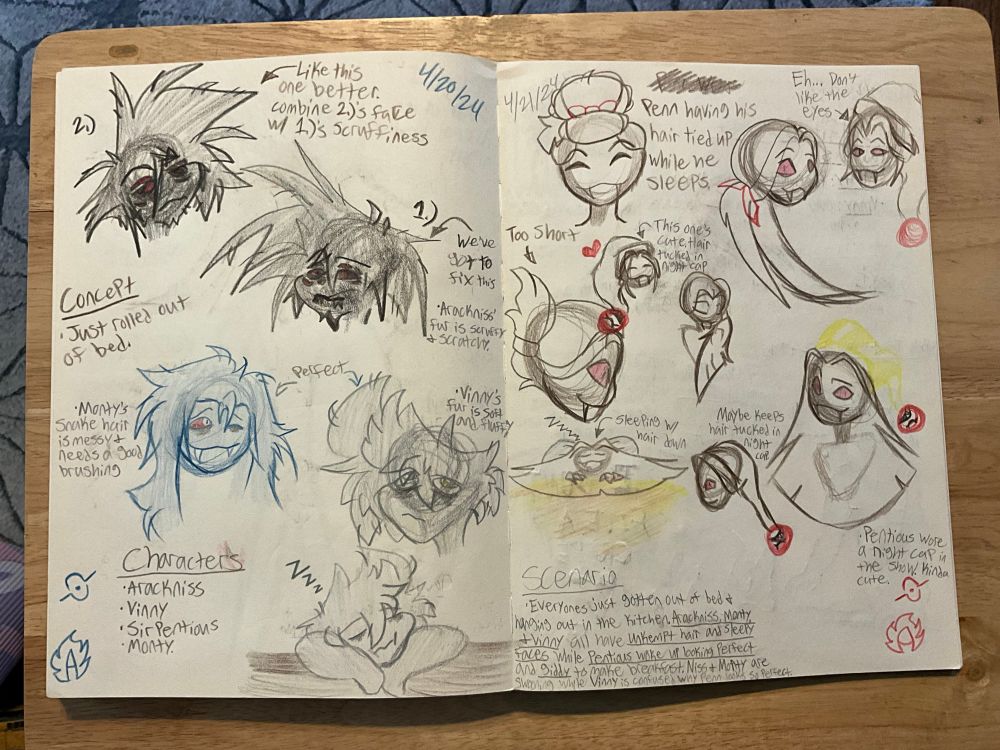 2.)
Like this
one better.
combine 2.)'s face
w/ 1)'s scruffiness
4/20/24
1.)
We've
got to
fix this
•Arackniss'
fur is scruffy
& scratchy.
Concept
•Just rolled out
of bed.
Perfect
•Monty's
Snake hair
is messy &
needs a good
brushing
•Vinny's
fur is soft
and fluffy
Characters
•Arackniss
•Vinny
•Sir Pentious
•Monty.
zzz
4/21/24
Penn having his
hair tied up
while he
sleeps.
Eh... Don't
like the
eyes
Too Short
This one's
cute, Hair
tucked in
night cap
Sleeping w/
hair down
zzzz
Maybe keeps
hair tucked in
night
cap
•Pentious wore
a night cap in
the show. Kinda
cute.
Scenario
•Everyones just gotten out of bed &
hanging out in the kitchen. Arackniss, Monty
& Vinny all have unkempt hair and sleepy
faces while Pentious woke up looking perfect
and giddy to make breakfast. Niss & Monty are
while Vinny is confused why Penn looks so perfect.